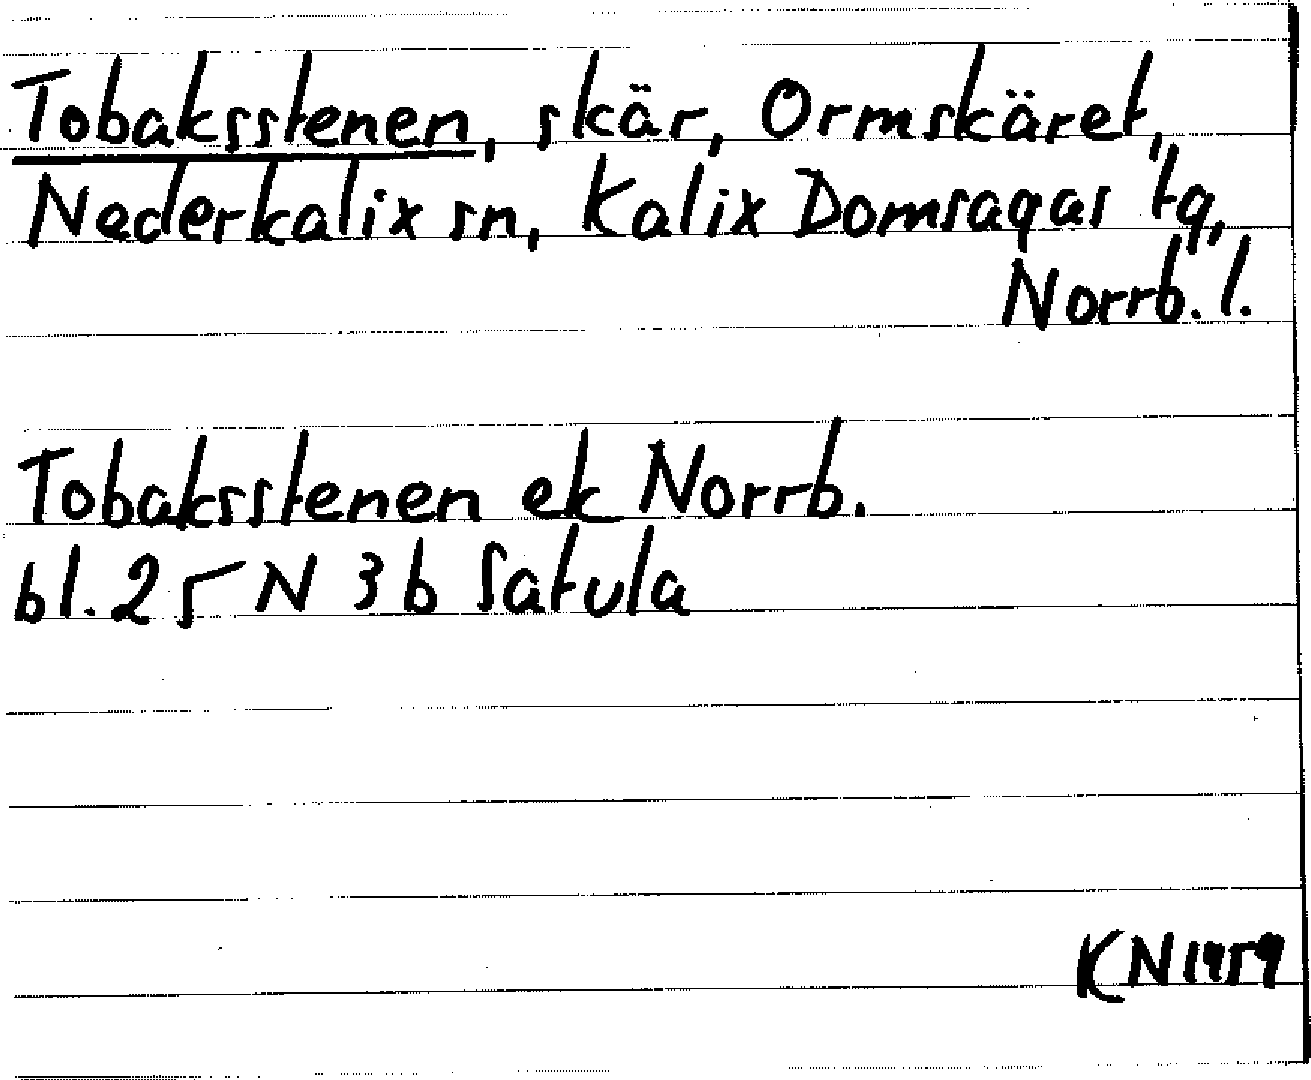 Tobaksstenen, skär, Ormskäret,
Nederkalix sn, Kalix Domsagas tg,
Norrb. l.
Tobaksstenen ek Norrb.
bl. 25 N 3 b Satula
KN 1959